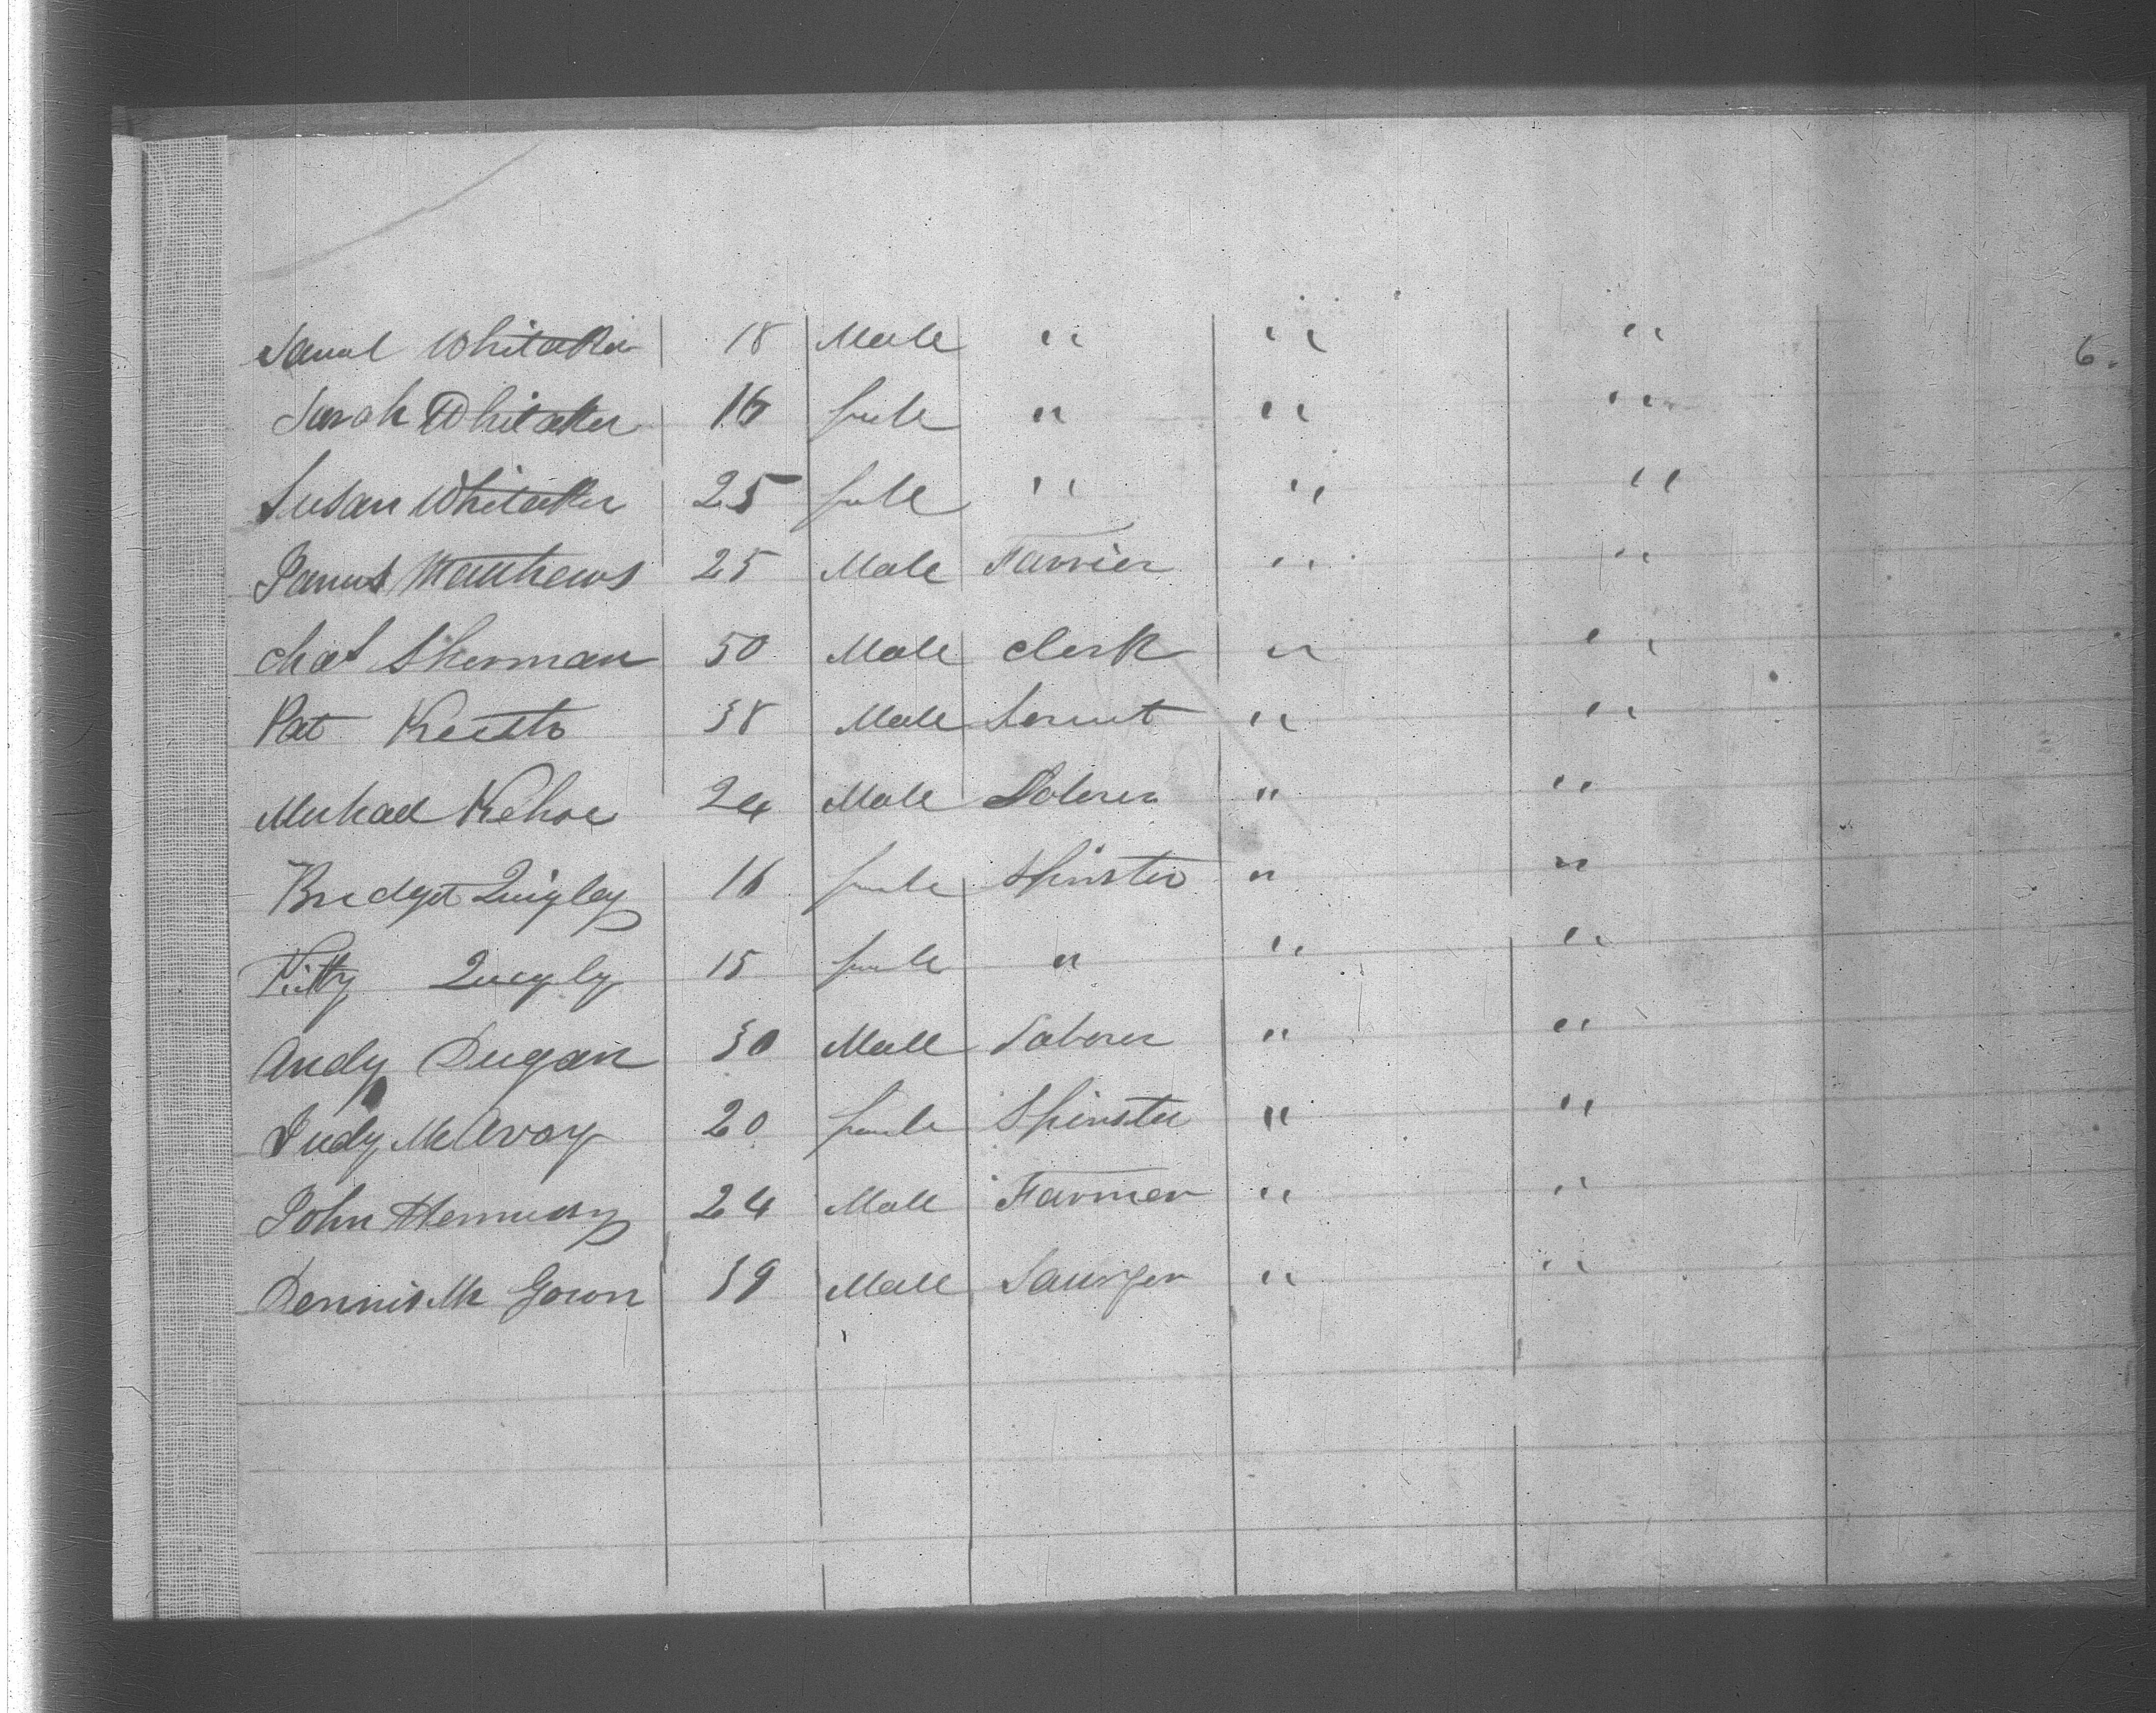 Saml Whitaker 18 Male " " " 6.
Sarah Whitaker 16 fmle " " "
Susan Whitaker 25 fmle " " "
James Matthews 25 Male Farrier " "
Chas Sherman 50 Male Clerk " "
Pat 38 Male Servnt " "
Michael Kehoe 24 Male Laborer " "
Bridget Quigley 16 fmle Spinster " "
Kitty Quigly 15 fmle " " "
Andy Dugan 30 Male Laborer " "
Judy McAvoy 20 fmle Spinster " "
John Hennedy 24 Male Farmer " "
Dennis Mc Gown 39 Male " "